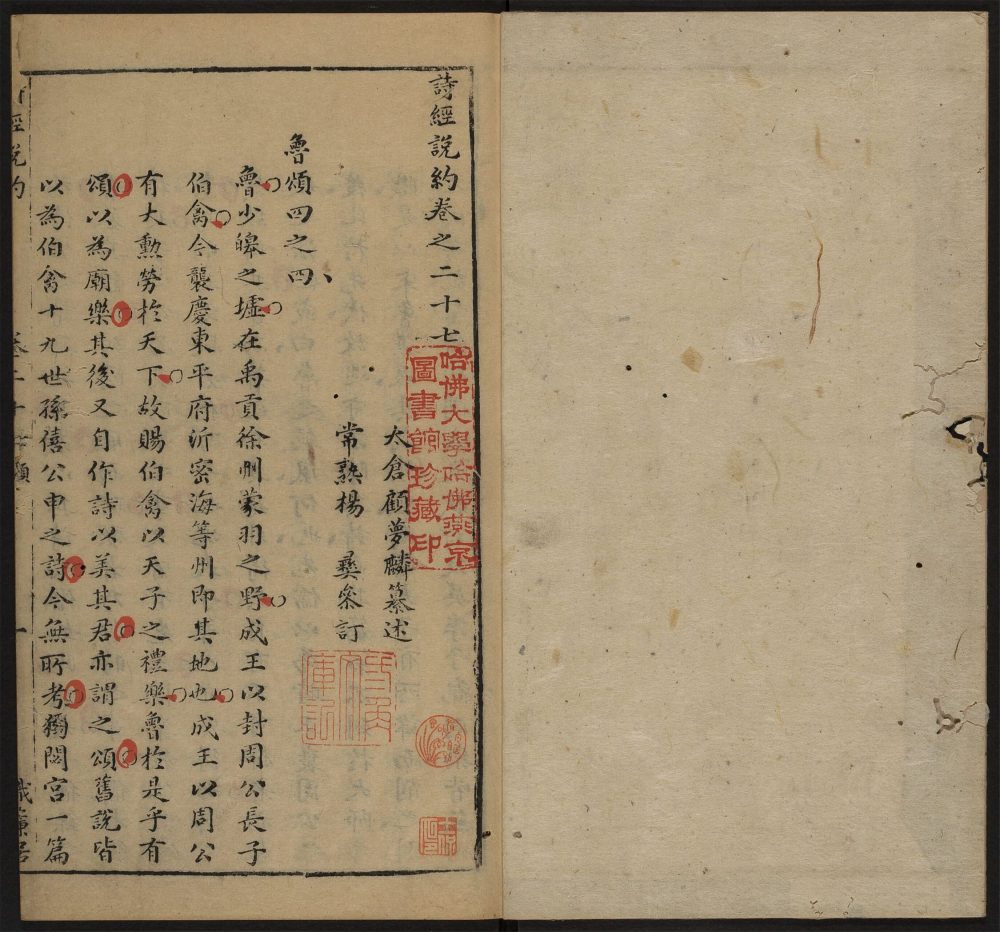 詩經說約卷之二十七
哈佛大學哈佛燕京
圖書館珍藏印
太倉顧夢麟纂述
常熟楊　彝參訂
魯頌四之四
魯少皞之墟在禹貢徐州蒙羽之野成王以封周公長子
伯禽今襲慶東平府沂密海等州即其地也成王以周公
有大勲勞於天下故賜伯禽以天子之禮樂魯於是乎有
頌以為廟樂其後又自作詩以美其君亦謂之頌舊說皆
以為伯禽十九世孫僖公申之詩今無所考獨閟宮一篇
經說約
卷二十七頌
一
織簾居